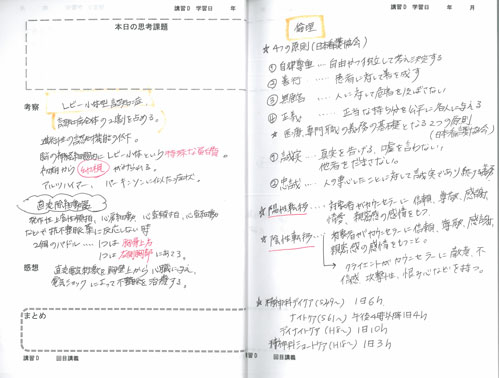 講習D 学習日 年
本日の思考課題
考察
レビー小体型認知症
認知症全体の2割を占める。
進行性の認知機能の低下。
脳の神経細胞にレビー小体という特殊な
アルツハイマー、パーキンソンに似た症状。
直流除細動
発作性上室性頻拍、心房細動、心室頻拍、心室細動
などで抗不整脈薬に反応しない時
2個のパドル…1つは胸骨上
1つは左側胸部にあてる。
感想
直流通電刺激を胸壁上から心臓に与え、
電気ショックによって不整脈を治療する。
まとめ
講習D 回目講義
講習D 学習日 年 月
倫理
★4つの原則(日本看護協会)
①自律尊重…自由かつ独立して考え決定する
②善行…患者に対して善を成す
③無危害…人に対して危害を及ぼさない
④正義…正当な持ち分を公平に各人に与える
★医療専門職の義務の基礎となる2つの原則
(日本看護協会)
①誠実…真実を告げる、嘘を言わない、
他者をだまさない。
②忠誠…人の事したことに対して誠実であり続ける
★陽性転移…対象者がカウンセラーに信頼、尊敬、感謝、
情愛、親密感の感情をもつ。
★陰性転移…対象者がカウンセラーに信頼、尊敬、感謝、
親密感の感情をもつこと。
クライエントがカウンセラーに敵意、不
信感、攻撃性、恨みなどを持つ。
★精神科デイケア(S49〜) 1日6h
ナイトケア(S61〜) 午後4時以降1日4h
デイナイトケア(H6〜) 1日10h
精神科ショートケア(H18〜) 1日3h
講習D 回目講義